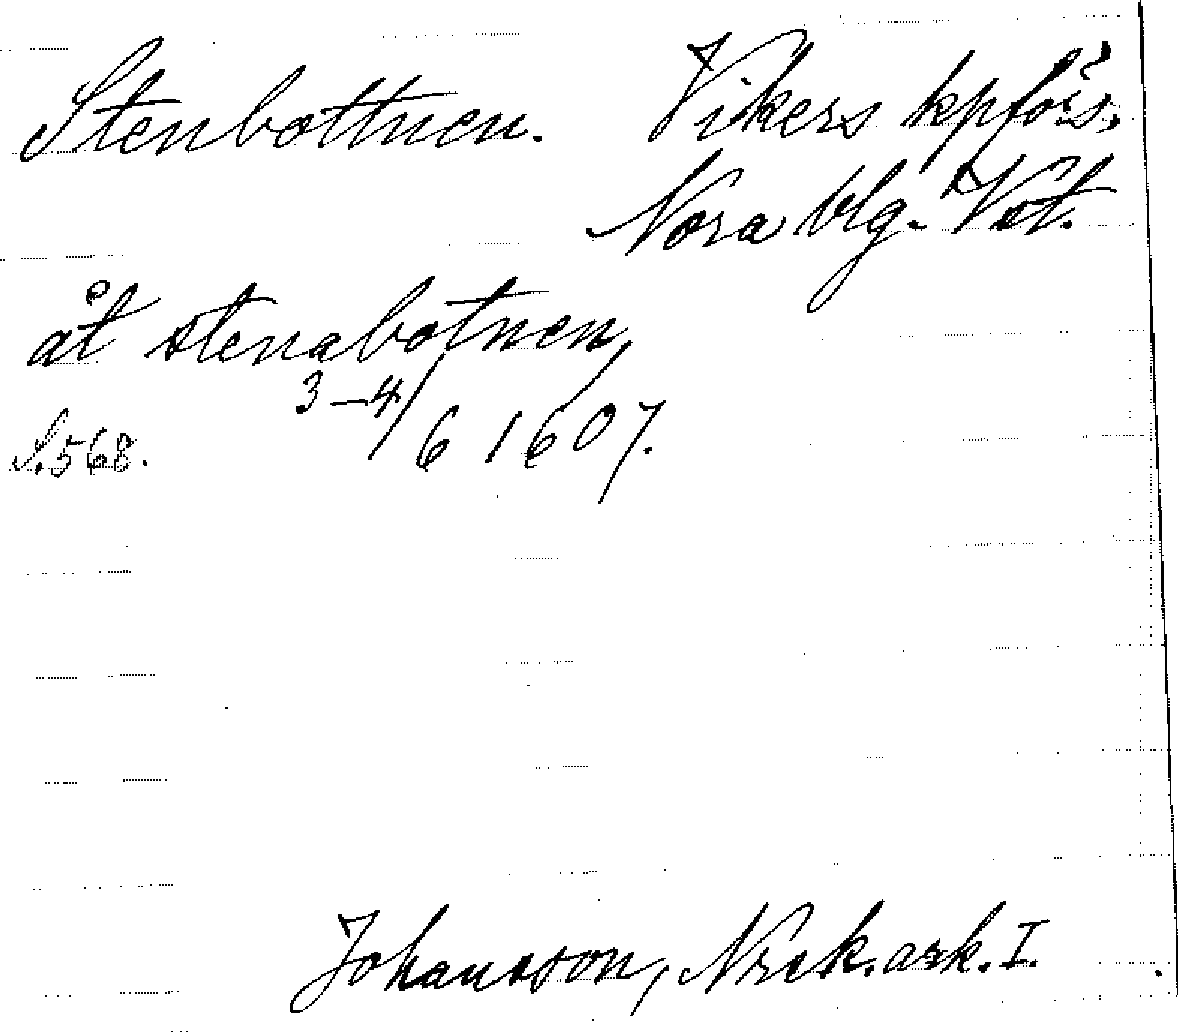 Stenbottnen. Vikers kpförs.
Nora blg. Vst.
åt stenabotnen,
3–4/6 1607.
S. 568.
Johansson, Nrck. ark. I.